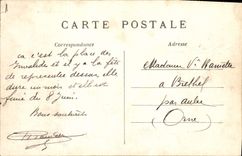 CARTE POSTALE
Correspondance
Adresse
ça c'est la place des
Invalides et il y a la fête
de représentée dessus elle
dure un mois et elle sera
finie le 8 Juin.
Bons souhaits
Madame Vve
à Bréthel
par Aube
Orne